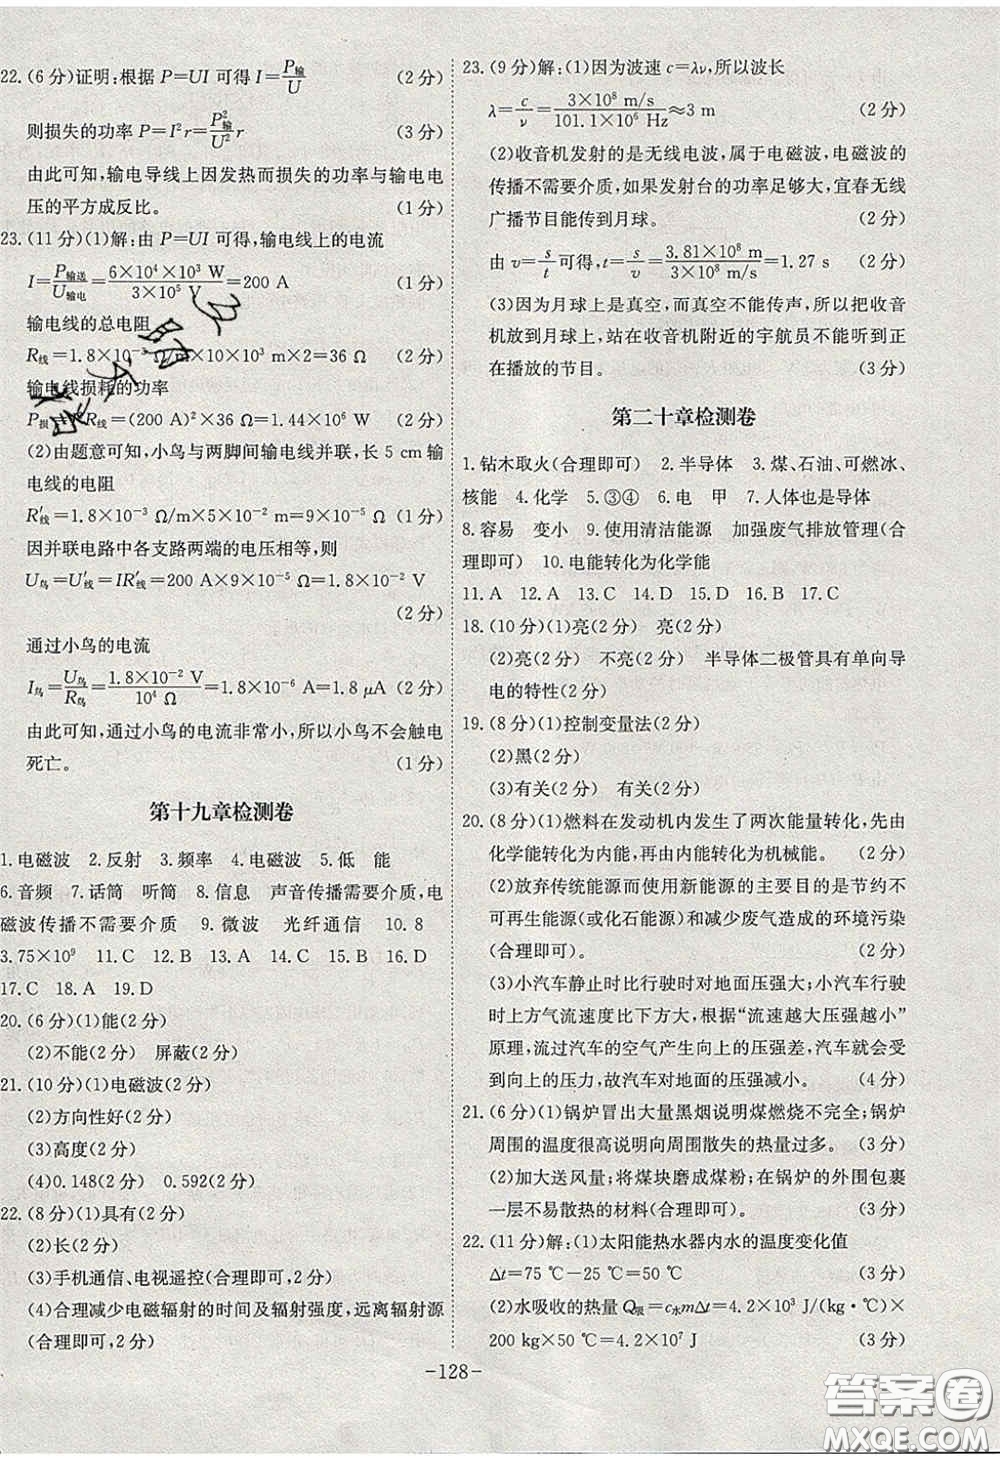 22.(6分)证明:根据 P=UI 可得 I=P输/U (2分)
则损失的功率 P=I²r=P²输/U² r (3分)
由此可知,输电导线上因发热而损失的功率与输电电
压的平方成反比。 (1分)
23.(11分)(1)解:由 P=UI 可得,输电线上的电流
I=P输送/U输电=6×10⁴×10³ W/3×10⁵ V=200 A (1分)
输电线的总电阻
R线=1.8×10⁻³ Ω/m×10×10³ m×2=36 Ω (2分)
输电线损耗的功率
P损=I²R线=(200 A)²×36 Ω=1.44×10⁶ W (2分)
(2)由题意可知,小鸟与两脚间输电线并联,长 5 cm输
电线的电阻
R′线=1.8×10⁻³ Ω/m×5×10⁻² m=9×10⁻⁵ Ω (1分)
因并联电路中各支路两端的电压相等,则
U鸟=U′线=IR′线=200 A×9×10⁻⁵ Ω=1.8×10⁻² V
(2分)
通过小鸟的电流
I鸟=U鸟/R鸟=1.8×10⁻² V/10⁴ Ω=1.8×10⁻⁶ A=1.8 μA (2分)
由此可知,通过小鸟的电流非常小,所以小鸟不会触电
死亡。 (1分)
第十九章检测卷
1.电磁波 2.反射 3.频率 4.电磁波 5.低 能
6.音频 7.话筒 听筒 8.信息 声音传播需要介质,电
磁波传播不需要介质 9.微波 光纤通信 10.8
3.75×10⁹ 11.C 12.B 13.A 14.D 15.B 16.C
17.C 18.A 19.D
20.(6分)(1)能(2分)
(2)不能(2分) 屏蔽(2分)
21.(10分)(1)电磁波(2分)
(2)方向性好(2分)
(3)高度(2分)
(4)0.148(2分) 0.592(2分)
22.(8分)(1)具有(2分)
(2)长(2分)
(3)手机通信、电视遥控(合理即可,2分)
(4)合理减少电磁辐射的时间及辐射强度,远离辐射源
(合理即可,2分)
23.(9分)解:(1)因为波速 c=λν,所以波长
λ=c/ν=3×10⁸ m/s/101.1×10⁶ Hz≈3 m (2分)
(2)收音机发射的是无线电波,属于电磁波,电磁波的
传播不需要介质,如果发射台的功率足够大,宜春无线
广播节目能传到月球。 (2分)
由 v=s/t可得,t=s/v=3.81×10⁸ m/3×10⁸ m/s=1.27 s (2分)
(3)因为月球上是真空,而真空不能传声,所以把收音
机放到月球上,站在收音机附近的宇航员不能听到正
在播放的节目。 (3分)
第二十章检测卷
1.钻木取火(合理即可) 2.半导体 3.煤、石油、可燃冰、
核能 4.化学 5.③④ 6.电 甲 7.人体也是导体
8.容易 变小 9.使用清洁能源 加强废气排放管理(合
理即可) 10.电能转化为化学能
11.A 12.A 13.C 14.D 15.D 16.B 17.C
18.(10分)(1)亮(2分) 亮(2分)
(2)亮(2分) 不亮(2分) 半导体二极管具有单向导
电的特性(2分)
19.(8分)(1)控制变量法(2分)
(2)黑(2分)
(3)有关(2分) 有关(2分)
20.(8分)(1)燃料在发动机内发生了两次能量转化,先由
化学能转化为内能,再由内能转化为机械能。 (2分)
(2)放弃传统能源而使用新能源的主要目的是节约不
可再生能源(或化石能源)和减少废气造成的环境污染
(合理即可)。 (2分)
(3)小汽车静止时比行驶时对地面压强大;小汽车行驶
时上方气流速度比下方大,根据“流速越大压强越小”
原理,流过汽车的空气产生向上的压强差,汽车就会受
到向上的压力,故汽车对地面的压强减小。 (4分)
21.(6分)(1)锅炉冒出大量黑烟说明煤燃烧不完全;锅炉
周围的温度很高说明向周围散失的热量过多。 (3分)
(2)加大送风量;将煤块磨成煤粉;在锅炉的外围包裹
一层不易散热的材料(合理即可)。 (3分)
22.(11分)解:(1)太阳能热水器内水的温度变化值
Δt=75 ℃−25 ℃=50 ℃ (3分)
(2)水吸收的热量 Q吸=c水mΔt=4.2×10³ J/(kg·℃)×
200 kg×50 ℃=4.2×10⁷ J (3分)
-128-
答案圈
MXQE.COM